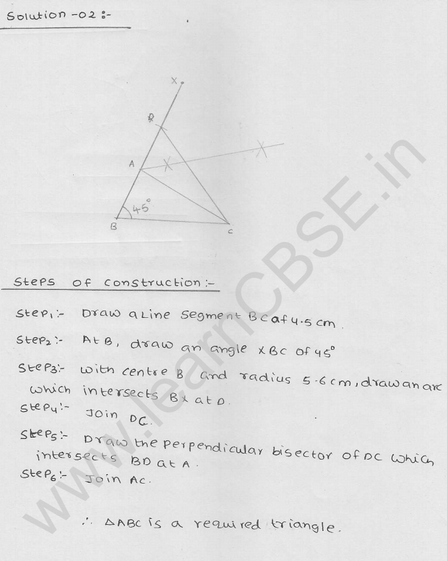 Solution -02:-
X
D
A
45°
B
C
Steps of construction:-
Step1:- Draw a Line segment BC of 4.5 cm.
Step2:- At B, draw an angle XBC of 45°
Step3:- with centre B and radius 5.6cm, draw an arc
which intersects BX at D.
Step4:- Join DC.
Step5:- Draw the perpendicular bisector of DC which
intersects BD at A.
Step6:- Join AC.
∴ ΔABC is a required triangle.
www.learnCBSE.in